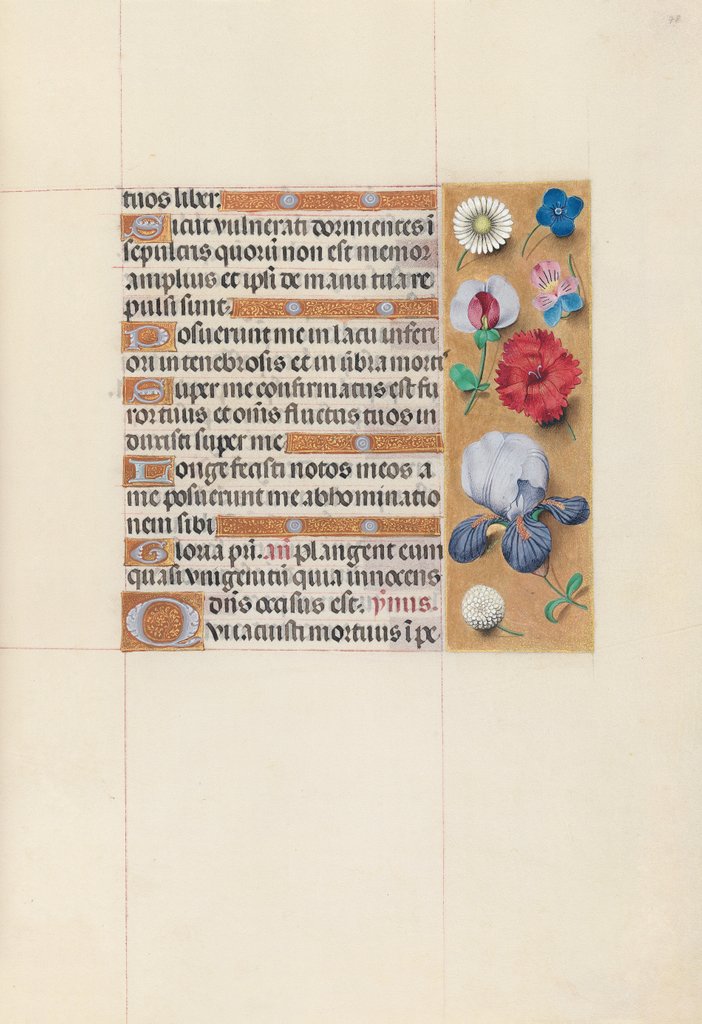 48
tuos liber.
Sicut vulnerati dormientes ī
sepulcris quorū non est memor
amplius et ipsi de manu tua re
pulsi sunt.
Posuerunt me in lacu inferi
ori in tenebrosis et in ūbra morti
Super me confirmatus est fu
ror tuus et oīns fluctus tuos in
duxisti super me
Longe fecisti notos meos a
me posuerunt me abhominatio
nem sibi
Gloria pri. añ plangent eum
quasi vnigenitū quia innocens
dn̄s occisus est. ymus.
Qui iacuisti mortuus ī pe